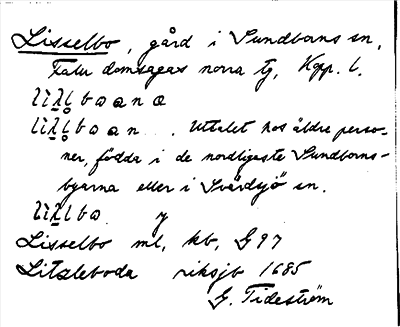 Lisselbo, gård i Sundborns sn,
Falu domsagas norra tg, Kopp. l.
. Uttalet hos äldre perso-
ner, födda i de nordligaste Sundborns-
byarna eller i Svärdsjö sn.
y
Lisselbo ml, kb, G 97
Litzleboda riksjb 1685
G. Tideström